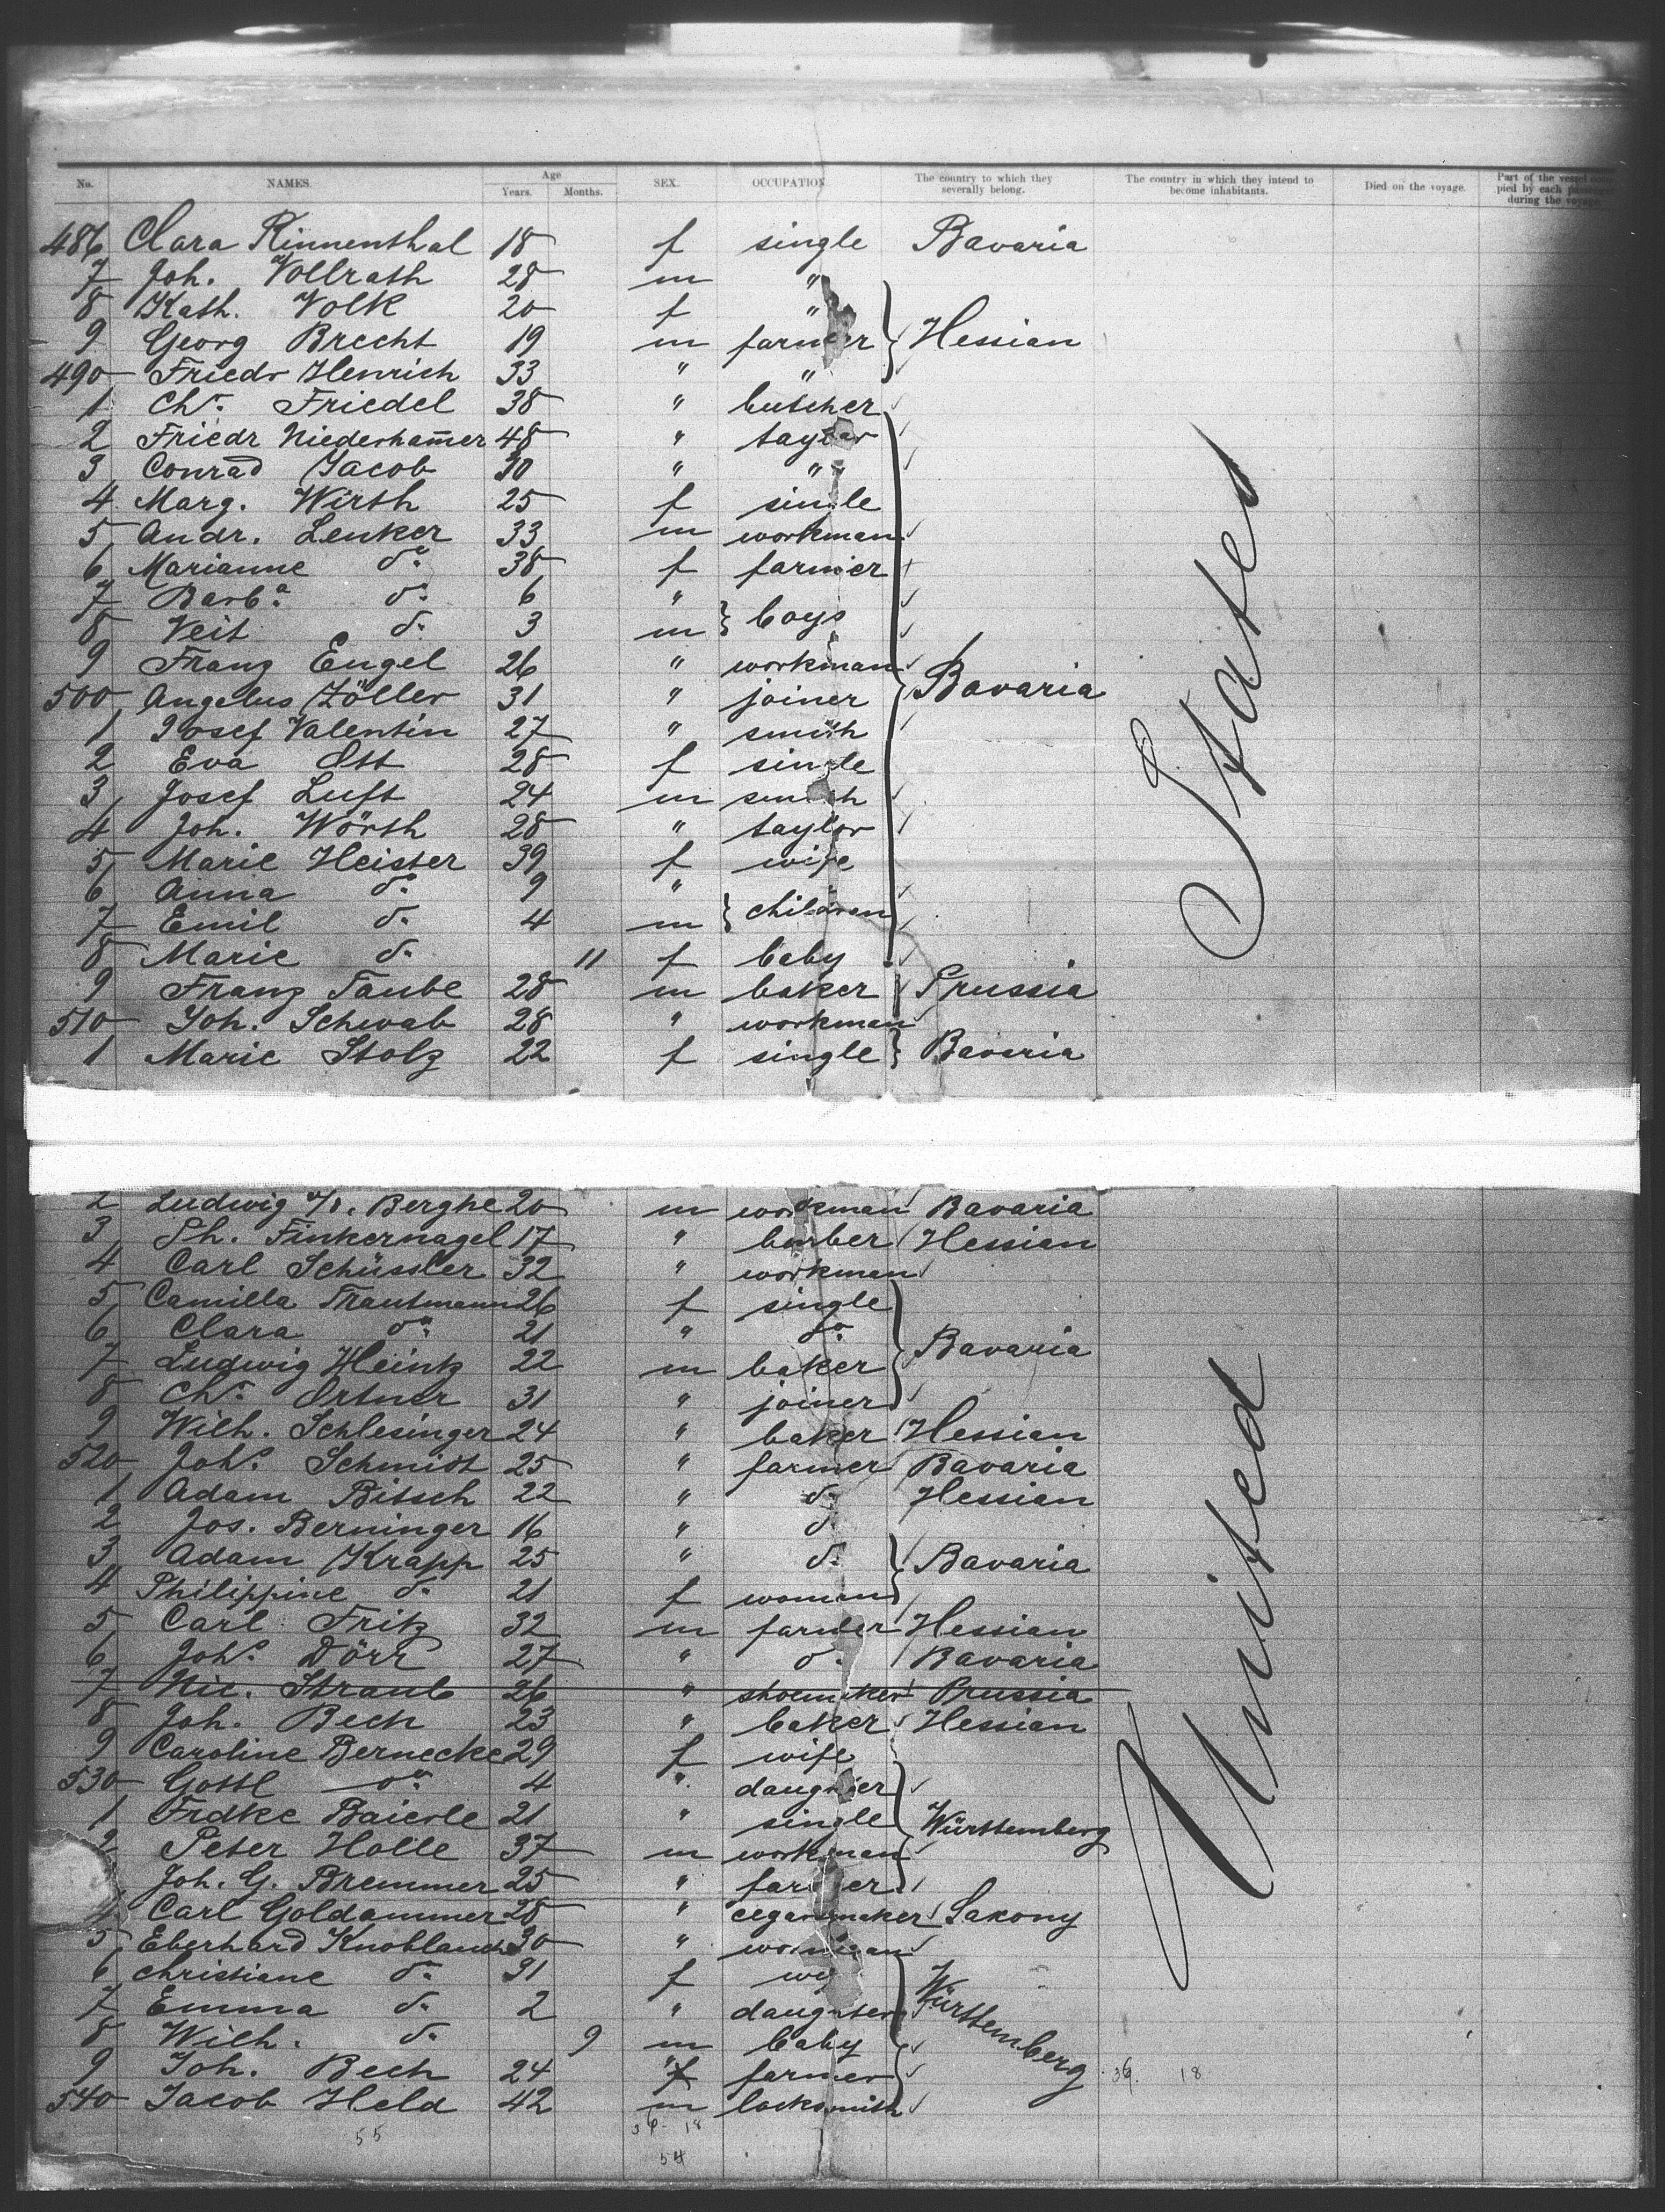 No. NAMES. Age Years. Months. SEX. OCCUPATION. The country to which they severally belong. The country in which they intend to become inhabitants. Died on the voyage. Part of the vessel occupied by each passenger during the voyage.
486 Clara Rinnenthal 18 f single Bavaria
7 Joh. Vollrath 28 m "
8 Kath. Volk 20 f "
9 Georg Brecht 19 m farmer Hessian
490 Friedr Henrich 33 " "
1 Chr. Friedel 38 " butcher
2 Friedr Niederham̅er 48 " taylor
3 Conrad Jacob 30 " "
4 Marg. Wirth 25 f single
5 Andr. Lenker 33 m workman
6 Marianne do. 38 f farmer
7 Barba. do. 6 "
8 Veit do. 3 m } boys
9 Franz Engel 26 " workman
500 Angelus Zöller 31 " joiner Bavaria
1 Josef Valentin 27 " smith
2 Eva Ott 28 f single
3 Josef Luft 24 m smith
4 Joh. Wörth 28 " taylor
5 Marie Heister 39 f wife
6 Anna do. 9 "
7 Emil do. 4 m } children
8 Marie do. 11 f baby
9 Franz Taube 28 m baker Prussia
510 Joh. Schwab 28 " workman
1 Marie Stolz 22 f single Bavaria
States
2 Ludwig v/d. Berghe 20 m workman Bavaria
3 Ph. Finkernagel 17 " barber Hessian
4 Carl Schüssler 32 " workman
5 Camilla Trautmann 26 f single
6 Clara do. 21 " do.
7 Ludwig Heintz 22 m baker Bavaria
8 Chr. Ortner 31 " joiner
9 Wilh. Schlesinger 24 " baker Hessian
520 Johs. Schmidt 25 " farmer Bavaria
1 Adam Bitsch 22 " do. Hessian
2 Jos. Berninger 16 " do.
3 Adam Krapp 25 " do. Bavaria
4 Philippine do. 21 f woman
5 Carl Fritz 32 m farmer Hessian
6 Johs. Dörr 27 " do. Bavaria
7 Nic. Straub 26 " shoemaker Prussia
8 Joh. Bech 23 " baker Hessian
9 Caroline Bernecke 29 f wife
530 Gottl do. 4 " daughter
1 Frdke Baierle 21 " single Württemberg
2 Peter Holle 37 m workman
Joh. G. Bremmer 25 " farmer
4 Carl Goldammer 28 " cigarsmaker Saxony
5 Eberhard Knoblauch 30 " workman
6 Christiane do. 31 f
7 Emma do. 2 " daughter Württemberg
8 Wilh. do. 9 m baby
9 Joh. Bech 24 " farmer
540 Jacob Held 42 m locksmith
United
36. 18
55
36 - 18
54